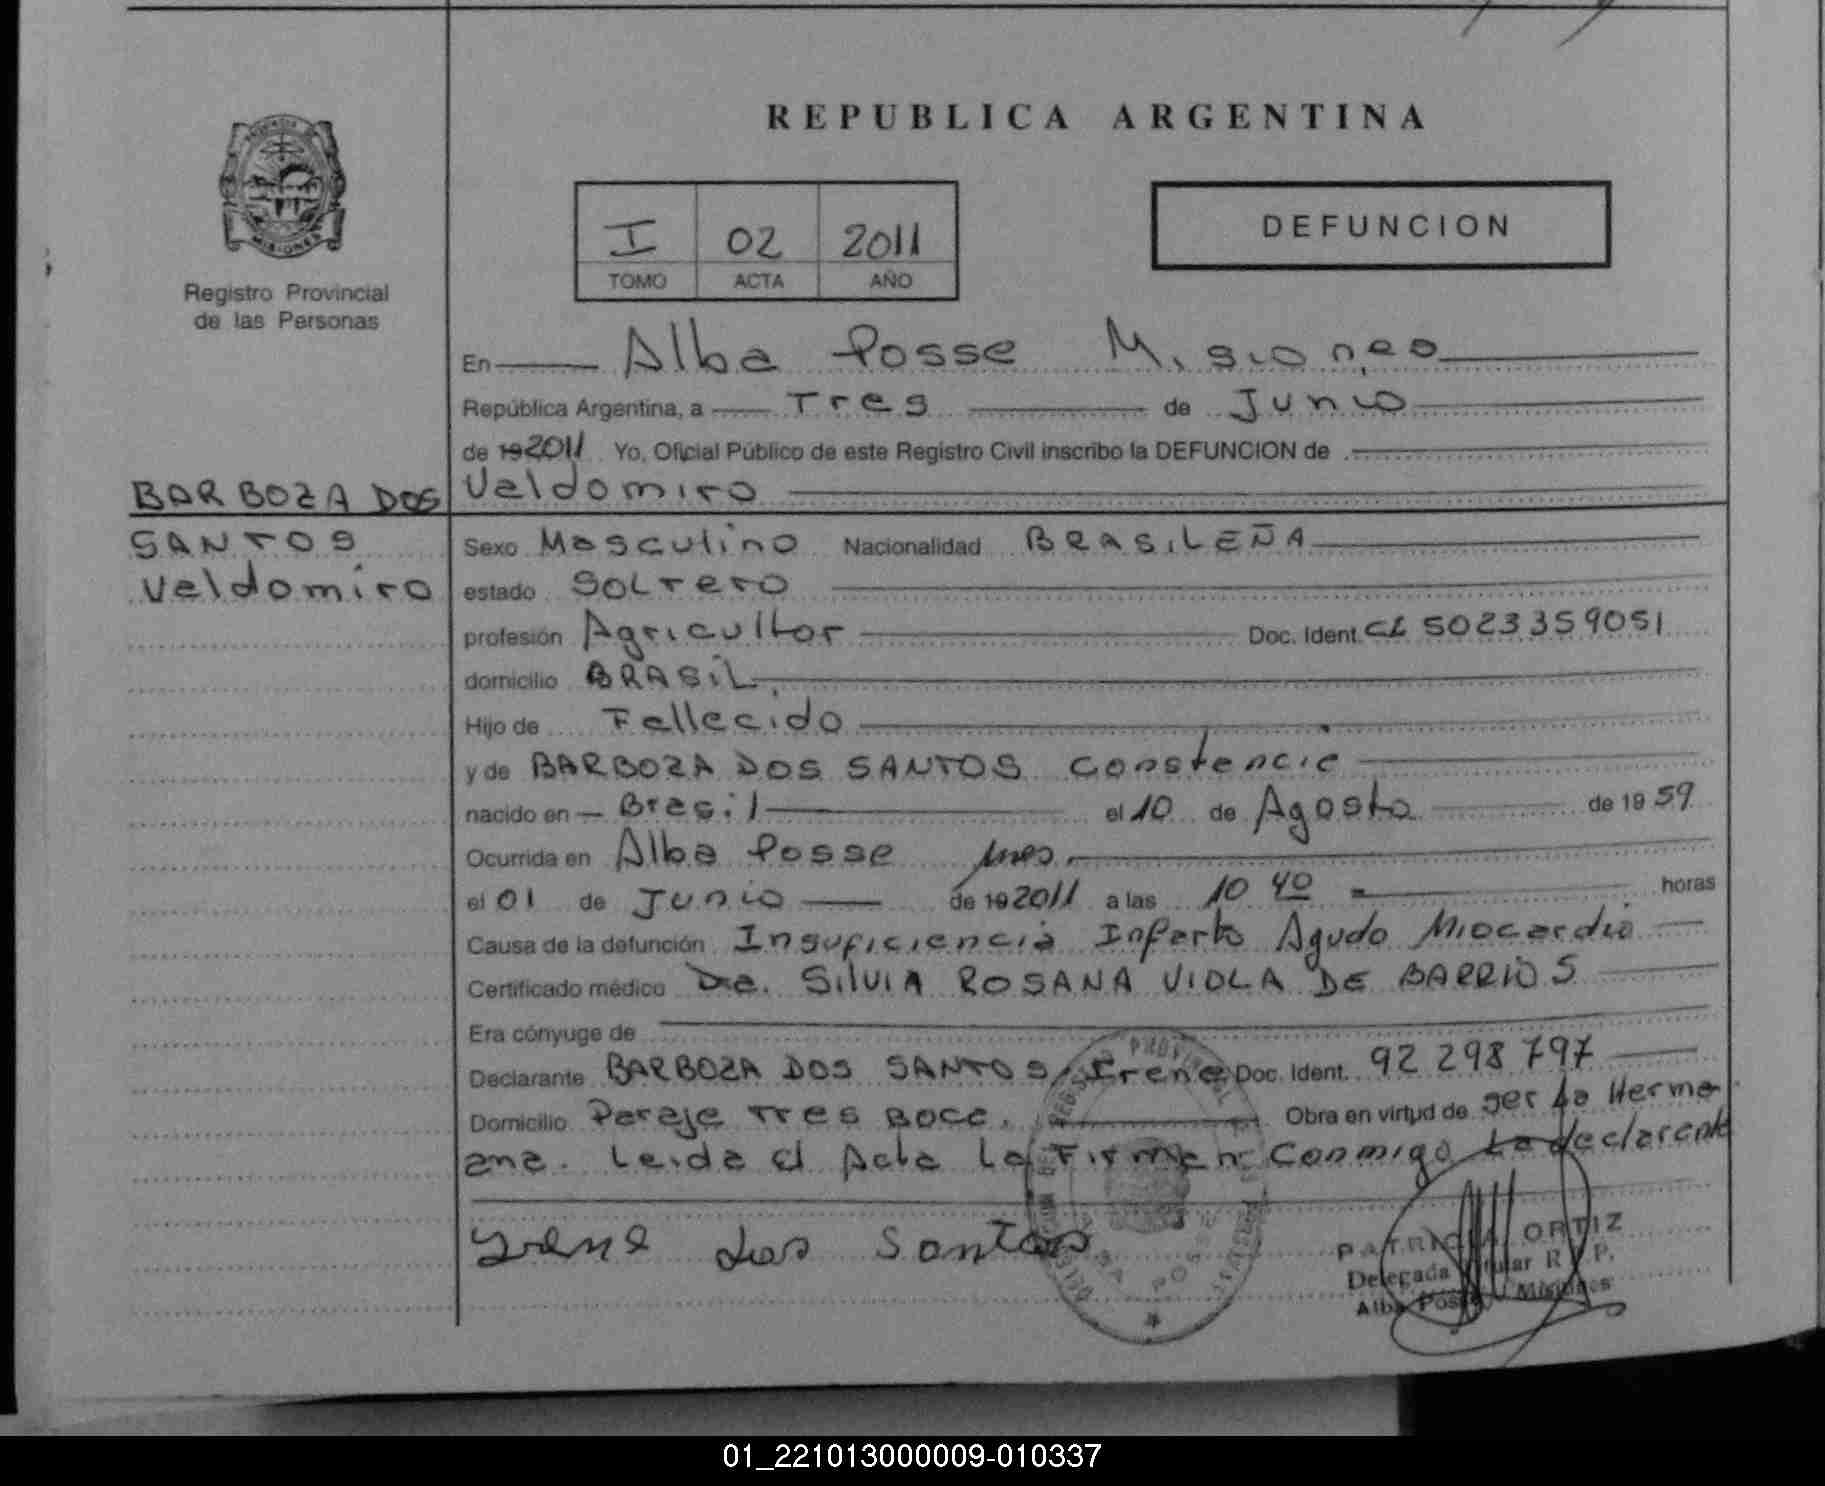 REPUBLICA ARGENTINA
PROVINCIA DE
MISIONES
Registro Provincial
de las Personas
I 02 2011
TOMO ACTA AÑO
DEFUNCION
En Alba Posse Misiones
República Argentina, a Tres de Junio
de 19 2011 Yo, Oficial Público de este Registro Civil inscribo la DEFUNCION de
BARBOZA DOS
SANTOS
Valdomiro
Valdomiro
Sexo Masculino Nacionalidad BRASILEÑA
estado SOLTERO
profesión Agricultor Doc. Ident. CI 5023359051
domicilio BRASIL
Hijo de Fallecido
y de BARBOZA DOS SANTOS Constancia
nacido en Brasil el 10 de Agosto de 19 59
Ocurrida en Alba Posse Mnes.
el 01 de Junio de 19 2011 a las 10 40 horas
Causa de la defunción Insuficiencia Infarto Agudo Miocardio
Certificado médico Dra. SILVIA ROSANA VIOLA DE BARRIOS
Era cónyuge de
Declarante BARBOZA DOS SANTOS, Irene Doc. Ident. 92 298 797
Domicilio Paraje Tres Boca. Obra en virtud de ser La Herma
ana. Leida el Acta La Firman Conmigo La declarante
Irene dos Santos
PATRICIA ORTIZ
Delegada Titular R. P.
Alba Posse Misiones
01_221013000009-010337